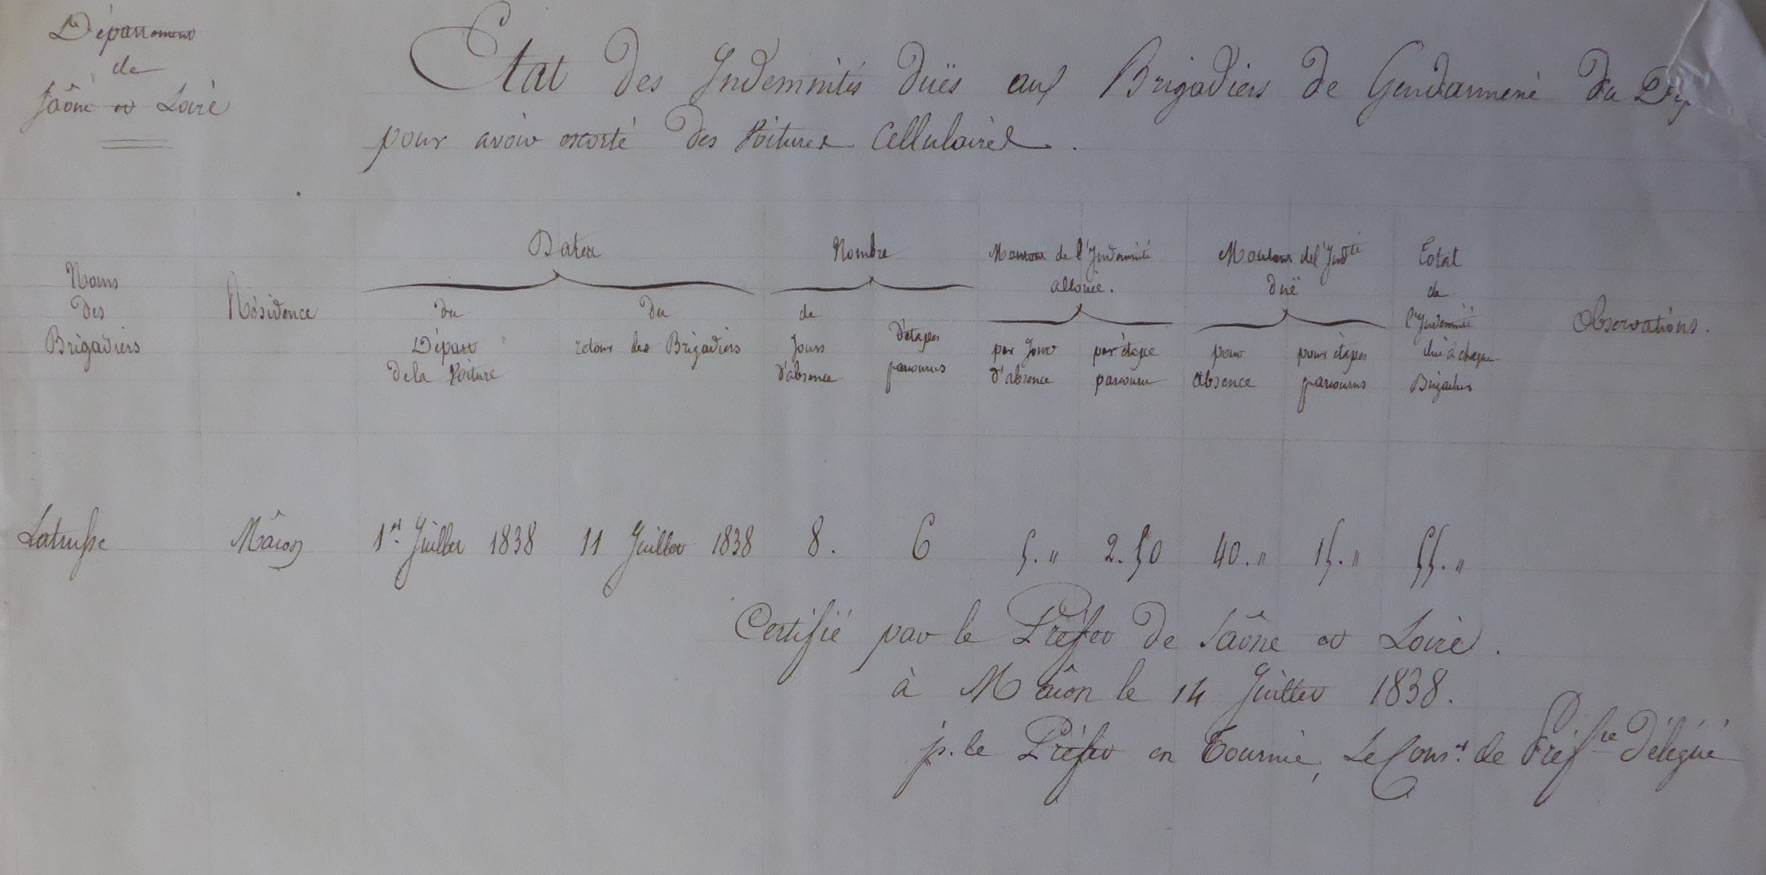 Département
de
Saône et Loire
Etat des Indemnités duës aux Brigadiers de Gendarmerie du Dép
pour avoir escorté des Voitures Cellulaires.
Noms
des
Brigadiers
Résidence
Dates
du
Départ
de la Voiture
du
retour des Brigadiers
Nombre
de
Jours
d'absence
d'étapes
parcourus
Montant de l'Indemnité
allouée.
par Jour
d'absence
par étape
parcouru
Montant de l'Ind.té
duë
pour
absence
pour étapes
parcourus
Total
de
l'Indemnité
due à chaque
Brigadier
Observations.
Mâcon 1er. Juillet 1838 11 Juillet 1838 8. 6 5. " 2.50 40. " 15. " 55. "
Certifié par le Préfet de Saône et Loire.
à Mâcon le 14 Juillet 1838.
p. le Préfet en Tournée, Le Cons.er de Préf.re délégué